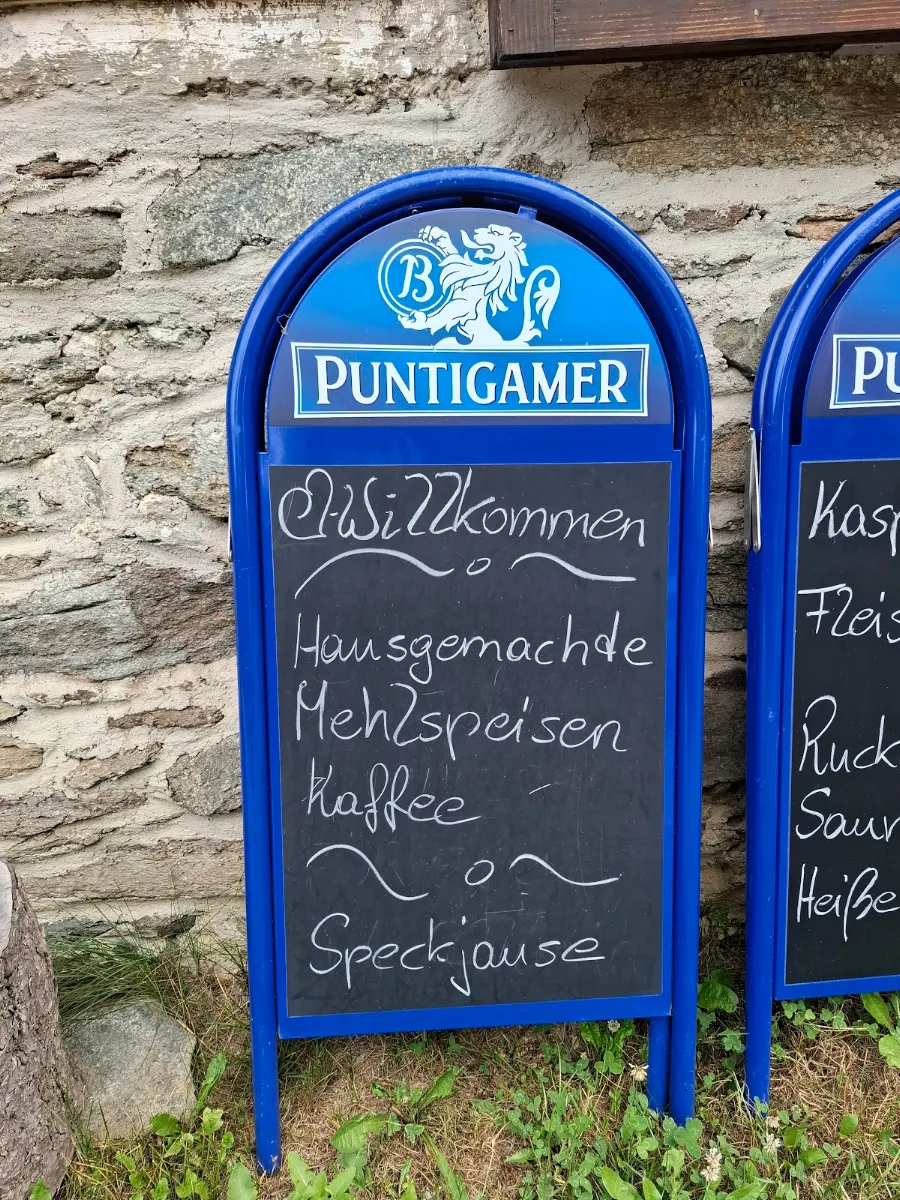 B
PUNTIGAMER
Willkommen
Hausgemachte
Mehlspeisen
Kaffee
Speckjause
PU
Kasp
Fleis
Ruck
Saur
Heiße